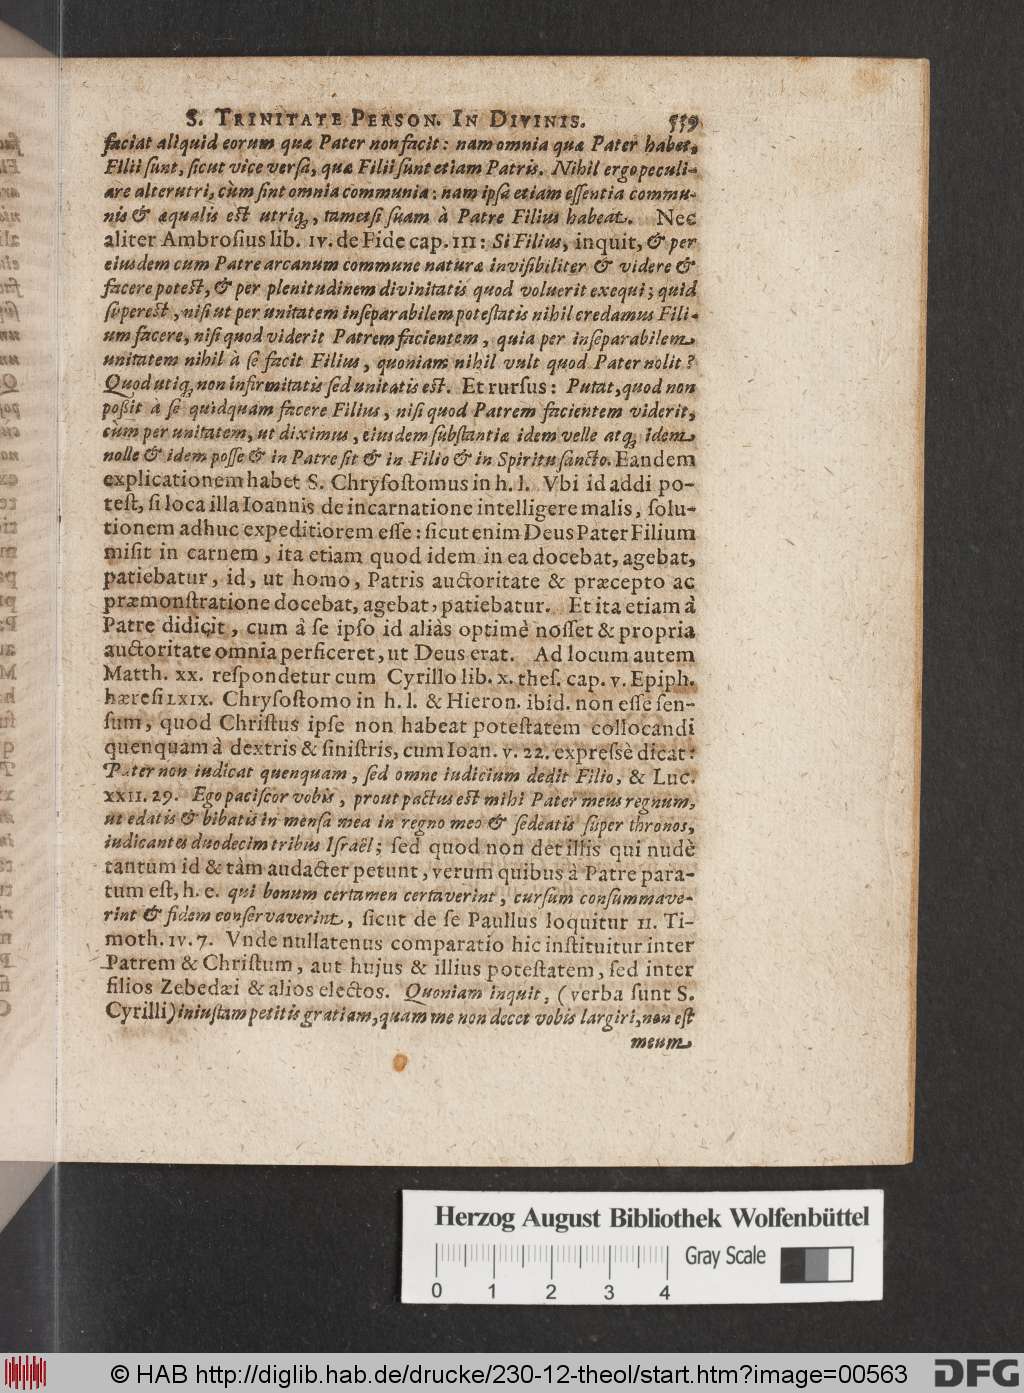 S. TRINITATE PERSON. IN DIVINIS. 559
faciat aliquid eorum quæ Pater non facit: nam omnia quæ Pater habet,
Filii ſunt, ſicut vice verſâ, quæ Filii ſunt etiam Patris. Nihil ergo peculi-
are alterutri, cùm ſint omnia communia: nam ipſa etiam eſſentia commu-
nis & æqualis est utriq́, tametſi ſuam à Patre Filius habeat. Nec
aliter Ambroſius lib. IV. de Fide cap. III: Si Filius, inquit, & per
eiusdem cum Patre arcanum commune naturæ inviſibiliter & videre &
facere potest, & per plenitudinem divinitatis quod voluerit exequi; quid
ſuperest, niſi ut per unitatem inſeparabilem poteſtatis nihil credamus Fili-
um facere, niſi quod viderit Patrem facientem, quia per inſeparabilem
unitatem nihil à ſe facit Filius, quoniam nihil vult quod Pater nolit?
Quod utiq́, non infirmitatis ſed unitatis est. Et rurſus: Putat, quod non
poßit à ſe quidquam facere Filius, niſi quod Patrem facientem viderit,
cùm per unitatem, ut diximus, eiusdem ſubſtantiæ idem velle atq́ idem
nolle & idem poſſe & in Patre ſit & in Filio & in Spiritu ſancto. Eandem
explicationem habet S. Chryſoſtomus in h. l. Vbi id addi po-
teſt, ſi loca illa Ioannis de incarnatione intelligere malis, ſolu-
tionem adhuc expeditiorem eſſe: ſicut enim Deus Pater Filium
miſit in carnem, ita etiam quod idem in ea docebat, agebat,
patiebatur, id, ut homo, Patris auctoritate & præcepto ac
præmonſtratione docebat, agebat, patiebatur. Et ita etiam à
Patre didicit, cum à ſe ipſo id aliàs optimè noſſet & propria
auctoritate omnia perficeret, ut Deus erat. Ad locum autem
Matth. XX. reſpondetur cum Cyrillo lib. X. theſ. cap. V. Epiph.
hæreſi LXIX. Chryſoſtomo in h. l. & Hieron. ibid. non eſſe ſen-
ſum, quod Chriſtus ipſe non habeat poteſtatem collocandi
quenquam à dextris & ſiniſtris, cum Ioan. V. 22. expreſsè dicat:
Pater non iudicat quenquam, ſed omne iudicium dedit Filio, & Luc.
XXII. 29. Ego paciſcor vobis, prout pactus est mihi Pater meus regnum,
ut edatis & bibatis in menſa mea in regno meo & ſedeatis ſuper thronos,
iudicantes duodecim tribus Iſraël; ſed quod non det illis qui nudè
tantum id & tàm audacter petunt, verum quibus à Patre para-
tum eſt, h. e. qui bonum certamen certaverint, curſum conſummave-
rint & fidem conſervaverint, ſicut de ſe Paullus loquitur II. Ti-
moth. IV. 7. Vnde nullatenus comparatio hic inſtituitur inter
Patrem & Chriſtum, aut hujus & illius poteſtatem, ſed inter
filios Zebedæi & alios electos. Quoniam inquit, (verba ſunt S.
Cyrilli) iniuſtam petitis gratiam, quam me non decet vobis largiri, non eſt
meum
Herzog August Bibliothek Wolfenbüttel
Gray Scale
0 1 2 3 4
© HAB http://diglib.hab.de/drucke/230-12-theol/start.htm?image=00563
DFG